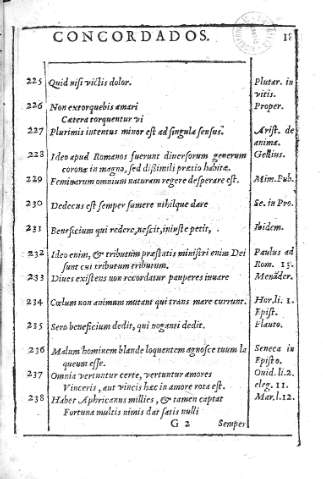 CONCORDADOS. 18
225 Quid nisi victis dolor. Plutar. in vitis.
226 Non extorquebis amari Proper.
Cætera torquentur vi
227 Plurimis intentus minor est ad singula sensus. Arist. de animæ.
228 Ideo apud Romanos fuerunt diversorum generum Gellius.
coronæ in magno, sed dissimili prætio habitæ.
229 Feminarum omnium naturam regere desperare est. Mim. Pub.
230 Dedecus est semper sumere nihilque dare Se. in Pro.
231 Beneficium qui redere nescit, iniuste petit, Ibidem.
232 Ideo enim, & tributum præstatis ministri enim Dei Paulus ad
sunt cui tributum tributum. Rom. 15.
233 Dives existens non recordatur pauperes iuvare Menãder.
234 Cœlum non animum mutant qui trans mare currunt. Hor. li. 1. Epist.
235 Sero beneficium dedit, qui roganti dedit. Plauto.
236 Malum hominem blande loquentem agnosce tuum la Seneca in
queum esse. Episto.
237 Omnia vertuntur certe, vertuntur amores Ouid. li. 2.
Vinceris, aut vincis hæc in amore rota est. eleg. 11.
238 Haber Aphricanus millies, & tamen captat Mar. l. 12.
Fortuna multis nimis dat satis nulli
G 2 Semper